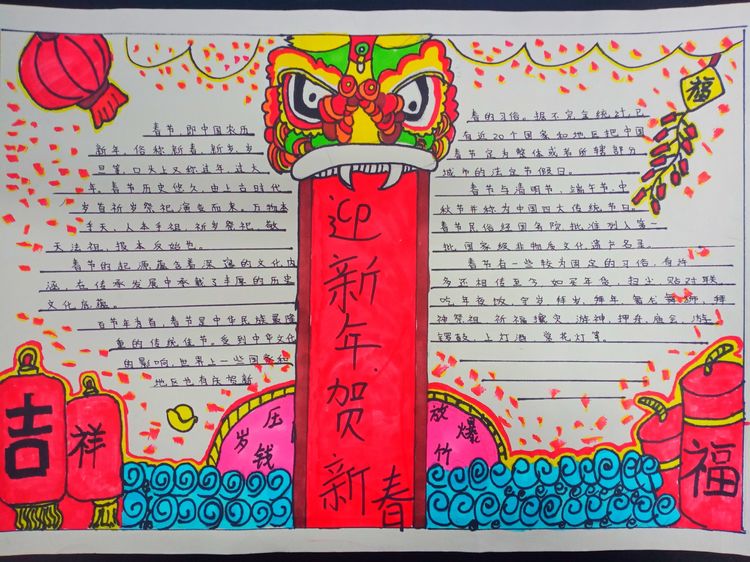 春节,即中国农历
新年,俗称新春、新岁、岁
旦等,口头上又称过年、过大
年。春节历史悠久,由上古时代
岁首祈岁祭祀演变而来。万物本
乎天,人本乎祖,祈岁祭祀、敬
天法祖,报本反始也。
春节的起源蕴含着深邃的文化内
涵,在传承发展中承载了丰厚的历史
文化底蕴。
百节年为首,春节是中华民族最隆
重的传统佳节。受到中华文化
的影响,世界上一些国家和
地区也有庆贺新
迎新年贺新春
春的习俗。据不完全统计,已
有近20个国家和地区把中国
春节定为整体或者所辖部分
城市的法定节假日。
春节与清明节、端午节、中
秋节并称为中国四大传统节日。
春节民俗经国务院批准列入第一
批国家级非物质文化遗产名录。
春节有一些较为固定的习俗,有许
多还相传至今,如买年货、扫尘、贴对联、
吃年夜饭、守岁、拜岁、拜年、舞龙舞狮、拜
神祭祖、祈福攘灾、游神、押舟、庙会、游
锣鼓、上灯酒、赏花灯等。
福
吉
祥
压岁钱
放爆竹
福